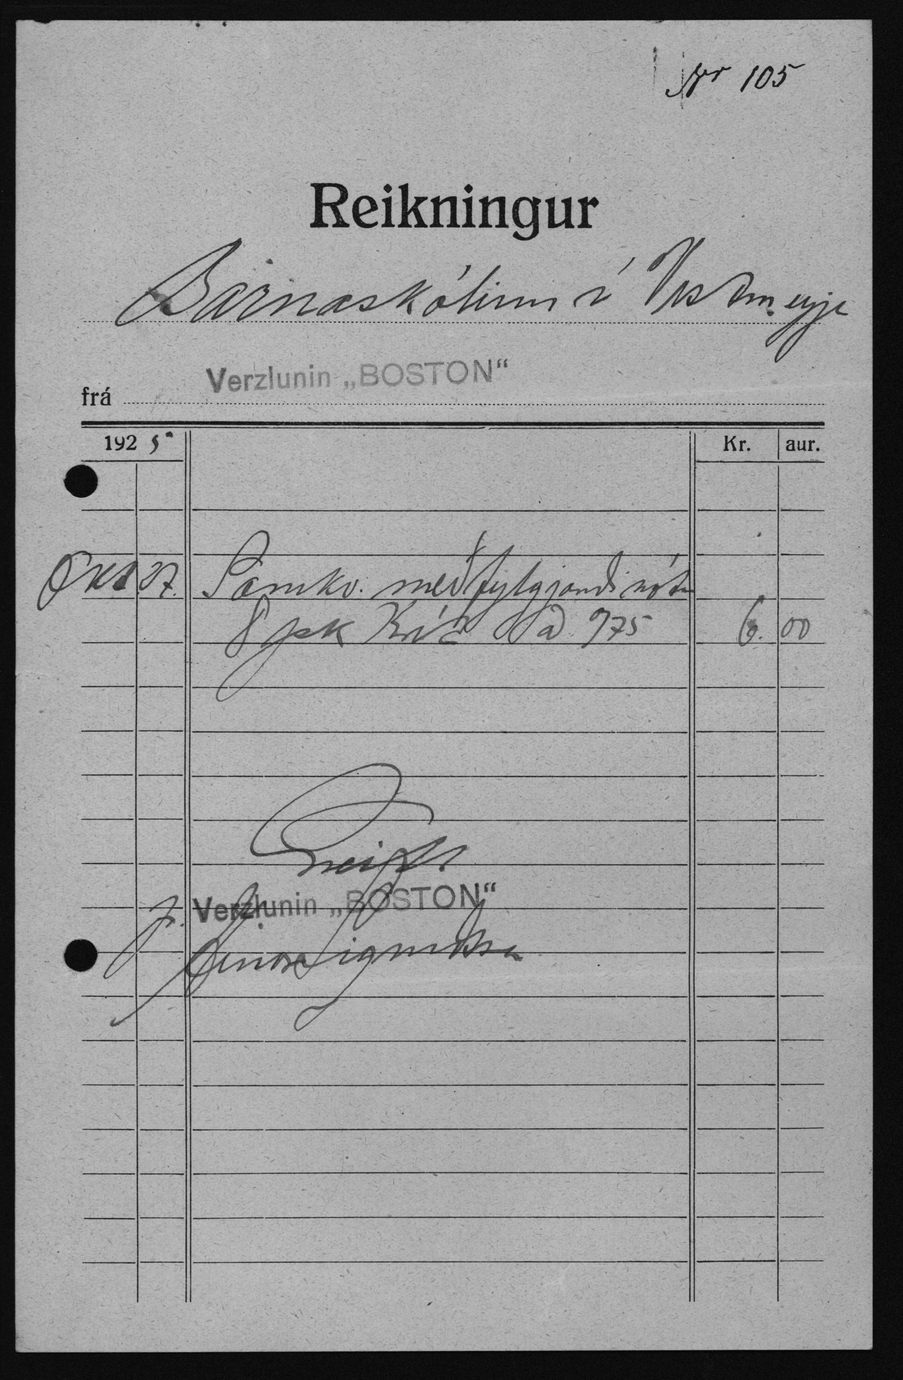 Nr 105
Reikningur
Barnaskólinn í Vestm.eyje
frá Verzlunin „BOSTON“
1925 Kr. aur.
Okt 27. Samkv. meðfylgjandi nótu
8 pk Krít á 975 6. 00
Greitt
Verzlunin „BOSTON“